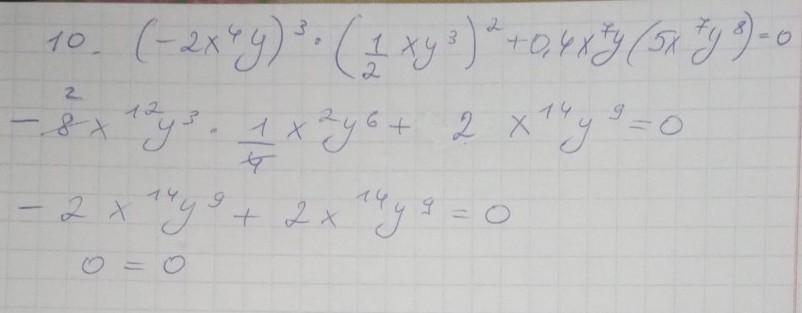 10. (-2x⁴y)³ · (1/2 xy³)² + 0,4x⁷y(5x⁷y⁸) = 0
- 8̶ ² x¹²y³ · 1/4̶ x²y⁶ + 2 x¹⁴y⁹ = 0
- 2x¹⁴y⁹ + 2x¹⁴y⁹ = 0
0 = 0